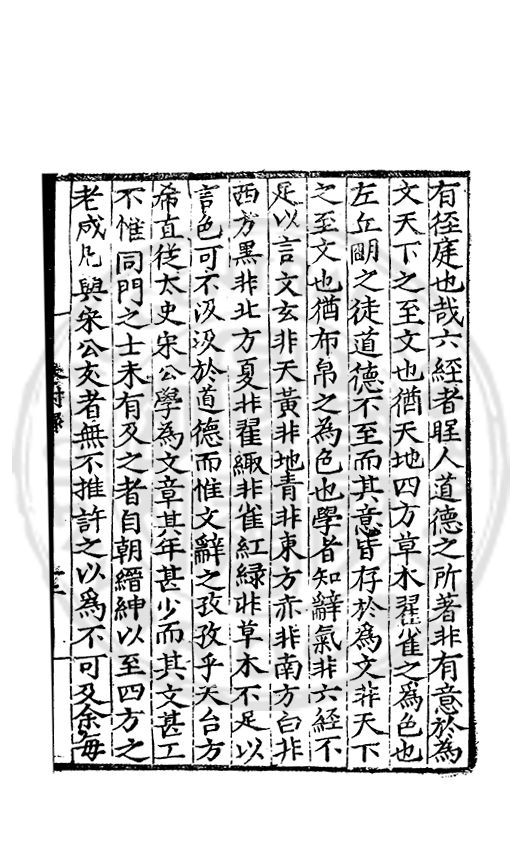 有徑庭也哉六經者聖人道德之所著非有意於為
文天下之至文也猶天地四方草木翟雀之為色也
左丘明之徒道德不至而其意皆存於為文非天下
之至文也猶布帛之為色也學者知辭氣非六經不
足以言文玄非天黃非地青非東方赤非南方白非
西方黑非北方夏非翟緅非雀紅緑非草木不足以
言色可不汲汲於道德而惟文辭之孜孜乎天台方
希直從太史宋公學為文章其年甚少而其文甚工
不惟同門之士未有及之者自朝縉紳以至四方之
老成凡與宋公友者無不推許之以為不可及余每
附錄